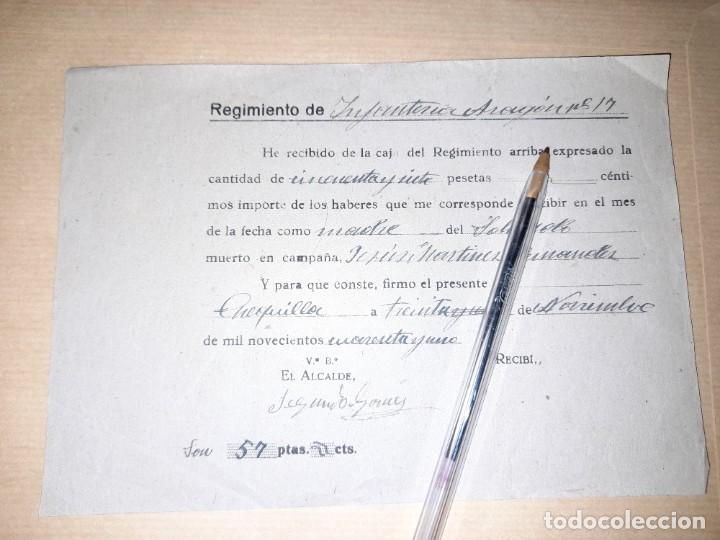 Regimiento de Infanteria Aragón nº 17
He recibido de la caja del Regimiento arriba expresado la
cantidad de cincuenta y siete pesetas cénti-
mos importe de los haberes que me corresponde recibir en el mes
de la fecha como madre del Soldado
muerto en campaña, Jesús Martinez Fernandez
Y para que conste, firmo el presente
a treinta de Noviembre
de mil novecientos cuarenta y uno
V.º B.º
EL ALCALDE,
RECIBÍ,,
Segundo Gomez
Son 57 ptas. cts.
todocoleccion
todocoleccion.net